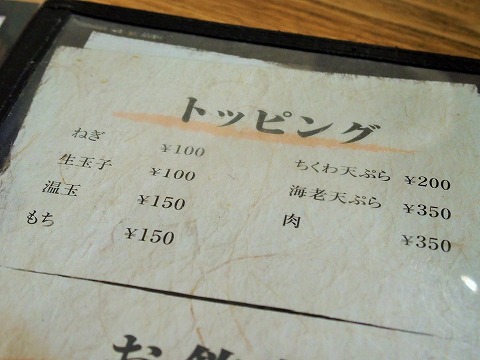 トッピング
ねぎ ¥100
生玉子 ¥100
温玉 ¥150
もち ¥150
ちくわ天ぷら ¥200
海老天ぷら ¥350
肉 ¥350
お